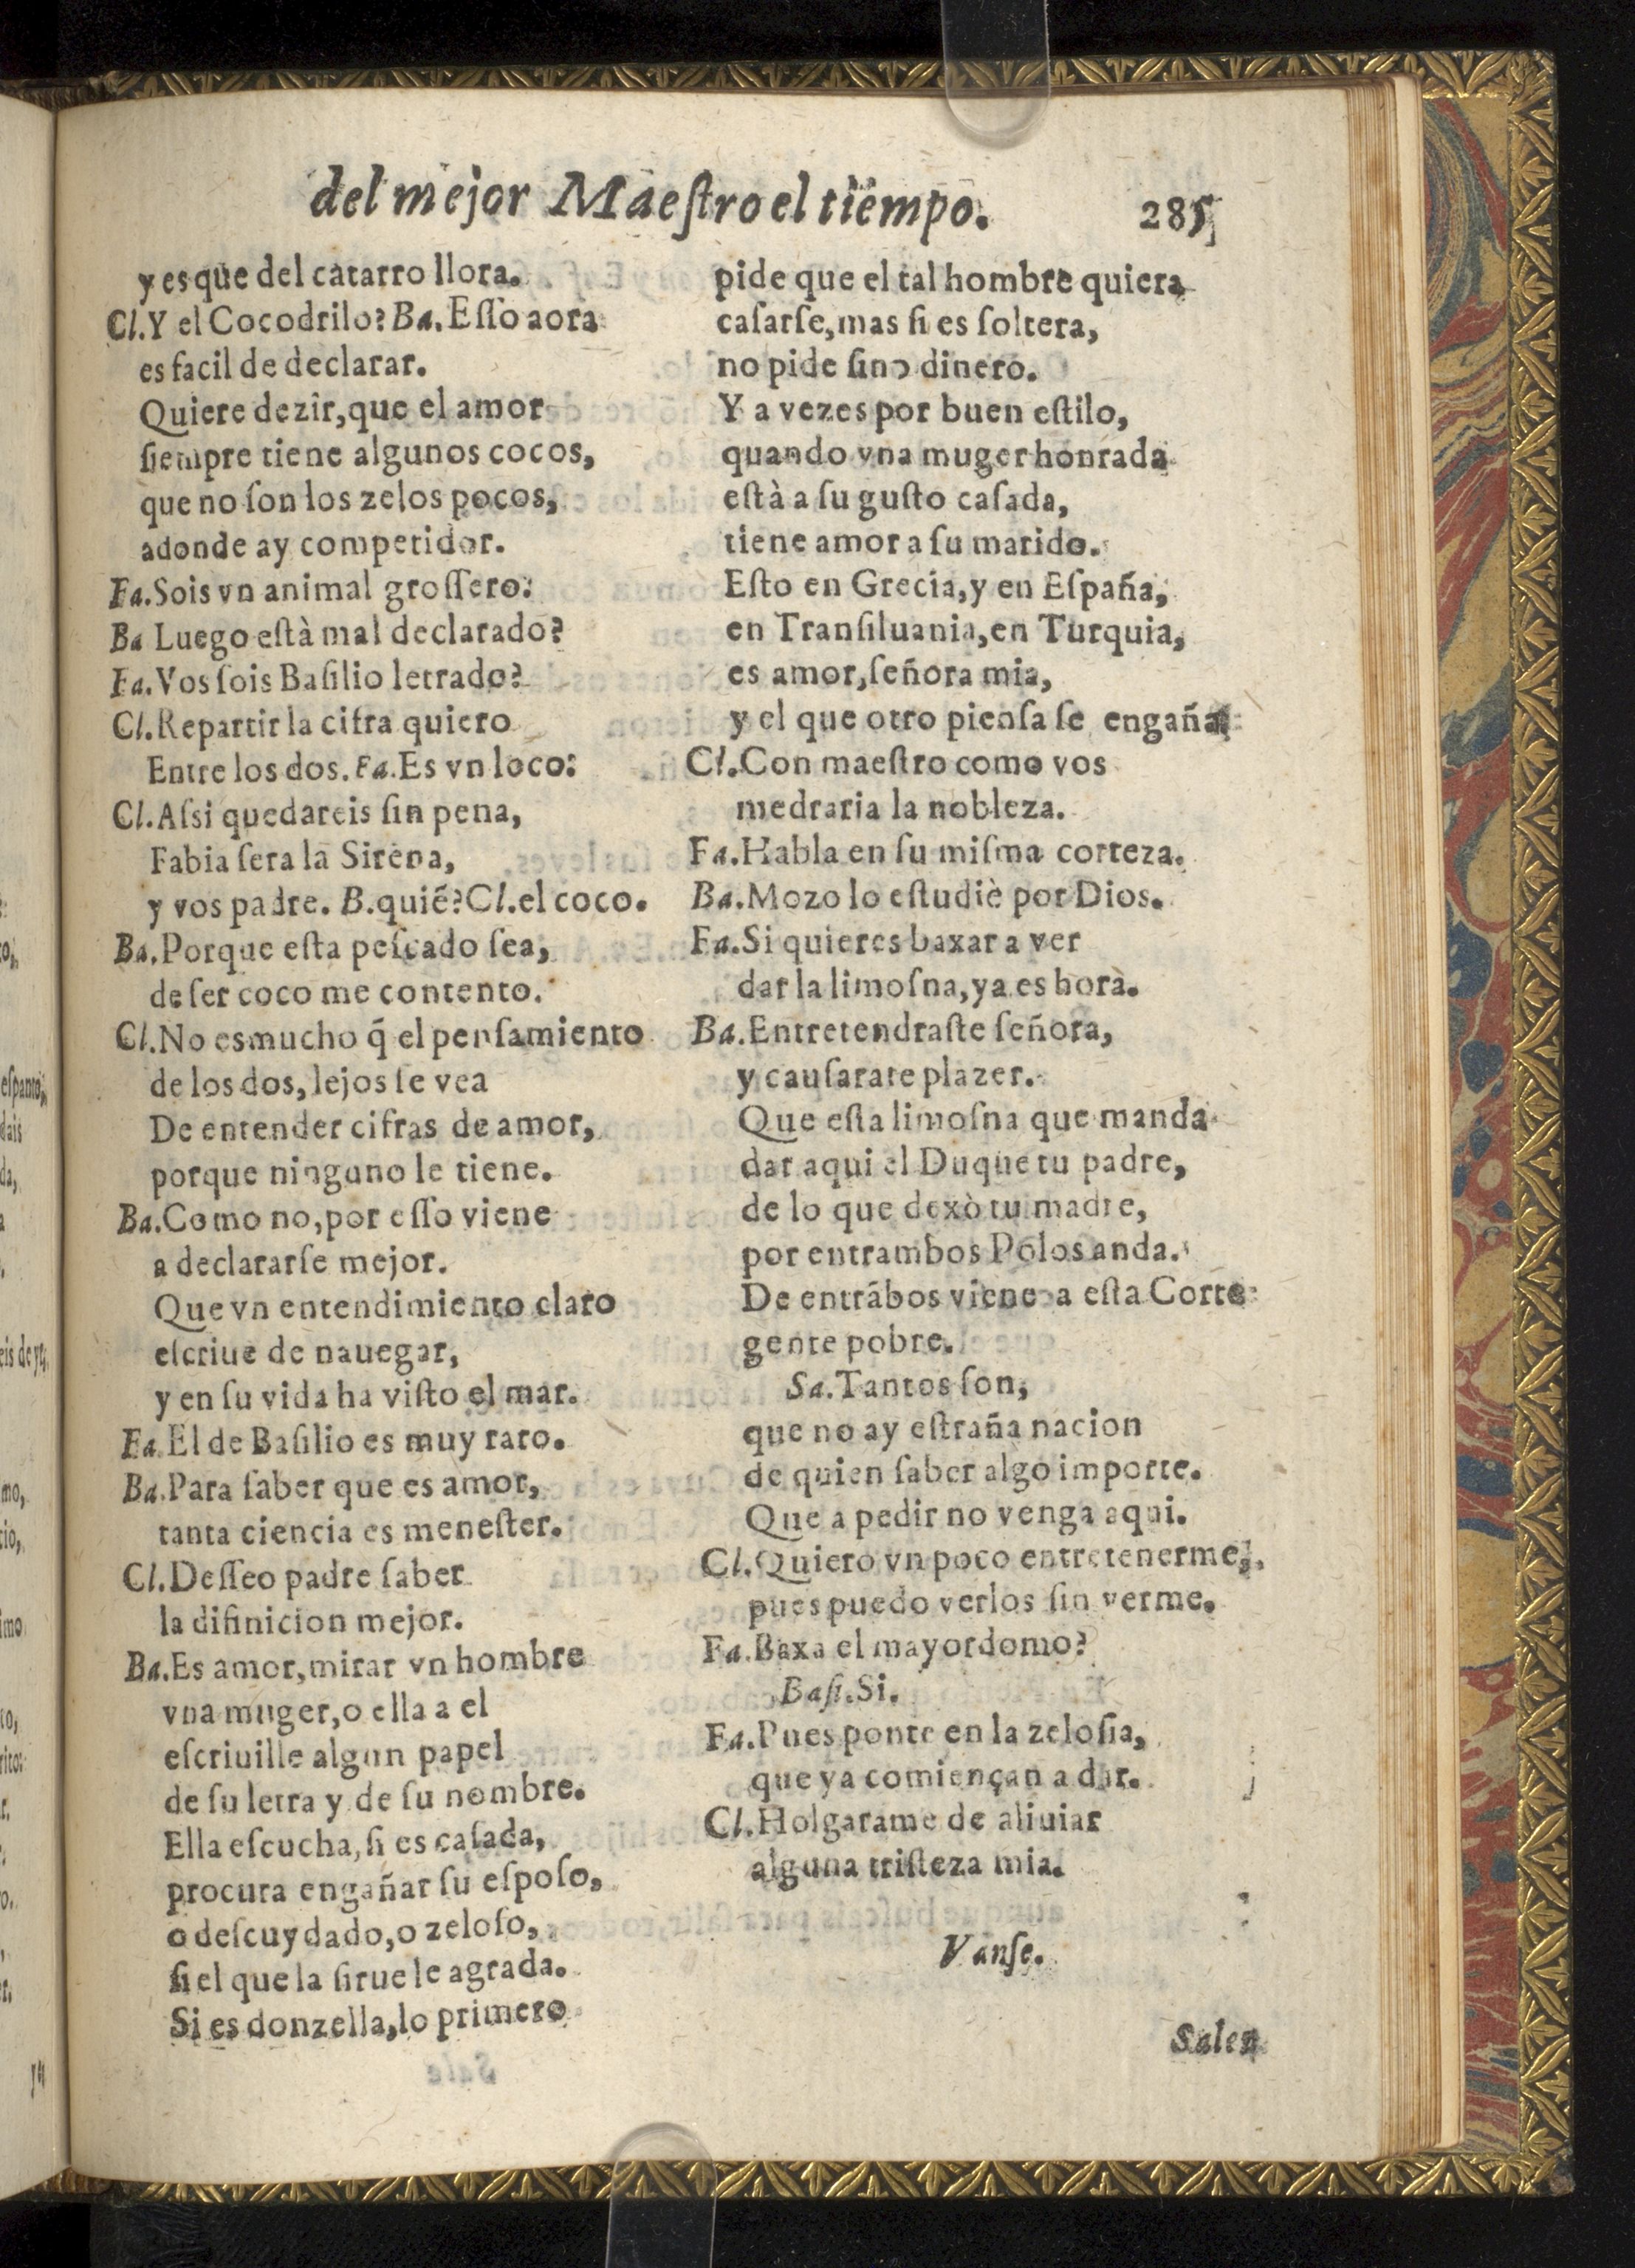 del mejor Maeſtro el tiempo. 285
y es que del catarro llora.
Cl.Y el Cocodrilo? Ba.Eſſo aora
es facil de declarar.
Quiere dezir, que el amor
ſiempre tiene algunos cocos,
que no ſon los zelos pocos,
adonde ay competidor.
Fa.Sois vn animal groſſero:
Ba Luego eſtà mal declarado?
Fa.Vos ſois Baſilio letrado?
Cl.Repartir la cifra quiero
Entre los dos. Fa.Es vn loco:
Cl.Aſsi quedareis ſin pena,
Fabia ſera la Sirena,
y vos padre. B.quié? Cl.el coco.
Ba.Porque eſta peſcado ſea,
de ſer coco me contento.
Cl.No es mucho q̃ el penſamiento
de los dos, lejos ſe vea
De entender cifras de amor,
porque ninguno le tiene.
Ba.Como no, por eſſo viene
a declararſe mejor.
Que vn entendimiento claro
eſcriue de nauegar,
y en ſu vida ha viſto el mar.
Fa.El de Baſilio es muy raro.
Ba.Para ſaber que es amor,
tanta ciencia es meneſter.
Cl.Deſſeo padre ſaber
la difinicion mejor.
Ba.Es amor, mirar vn hombre
vna muger, o ella a el
eſcriuille algun papel
de ſu letra y de ſu nombre.
Ella eſcucha, ſi es caſada,
procura engañar ſu eſpoſo,
o deſcuydado, o zeloſo,
ſi el que la ſirue le agrada.
Si es donzella, lo primero
pide que el tal hombre quiera
caſarſe, mas ſi es ſoltera,
no pide ſino dinero.
Y a vezes por buen eſtilo,
quando vna muger honrada
eſtà a ſu guſto caſada,
tiene amor a ſu marido.
Eſto en Grecia, y en Eſpaña,
en Tranſiluania, en Turquia,
es amor, ſeñora mia,
y el que otro pienſa ſe engaña
Cl.Con maeſtro como vos
medraria la nobleza.
Fa.Habla en ſu miſma corteza.
Ba.Mozo lo eſtudiè por Dios.
Fa.Si quieres baxar a ver
dar la limoſna, ya es hora.
Ba.Entretendraſte ſeñora,
y cauſarate plazer.
Que eſta limoſna que manda
dar aqui el Duque tu padre,
de lo que dexò tu madre,
por entrambos Polos anda.
De entrãbos viene a eſta Corte
gente pobre.
Sa.Tantos ſon,
que no ay eſtraña nacion
de quien ſaber algo importe.
Que a pedir no venga aqui.
Cl.Quiero vn poco entretenerme,
pues puedo verlos ſin verme.
Fa.Baxa el mayordomo?
Baſi.Si.
Fa.Pues ponte en la zeloſia,
que ya comiençan a dar.
Cl.Holgarame de aliuiar
alguna triſteza mia.
Vanſe.
Salen